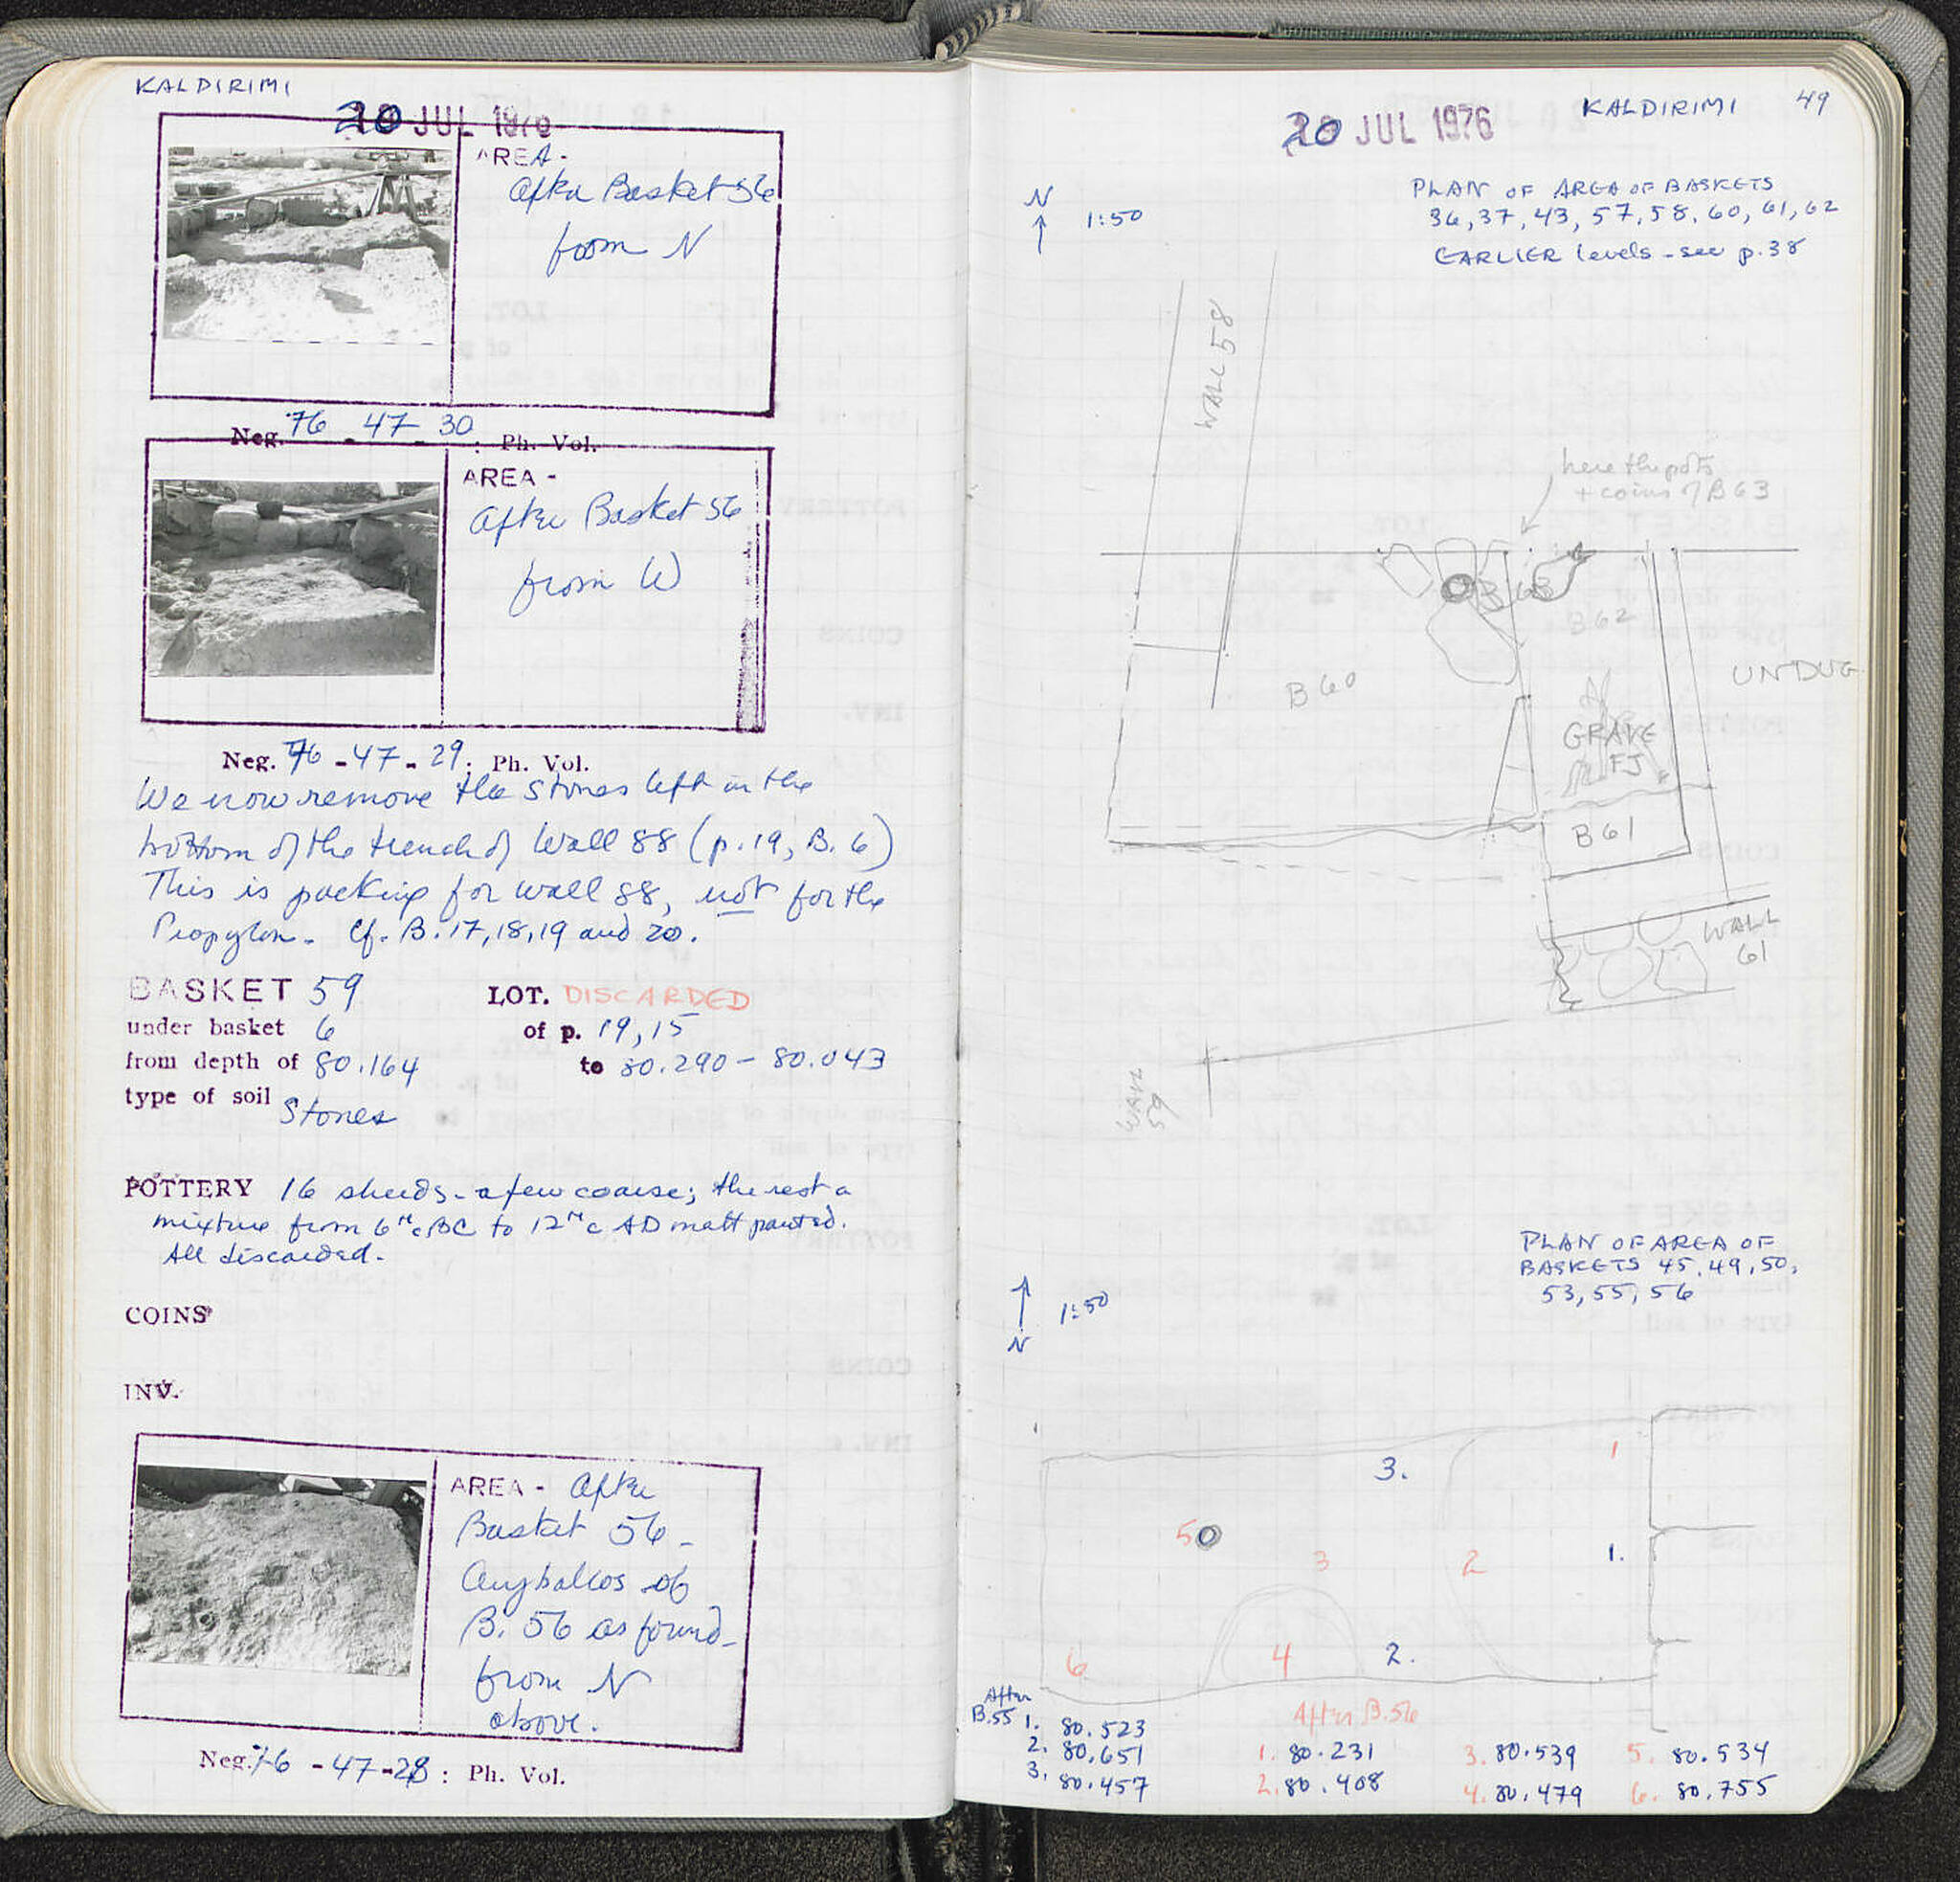 KALDIRIMI
20 JUL 1976
AREA -
After Basket 56
from N
Neg. 76 - 47 - 30 : Ph. Vol.
AREA -
After Basket 56
from W
Neg. 76 - 47 - 29 : Ph. Vol.
We now remove the stones left in the
bottom of the trench of Wall 88 (p. 19, B. 6)
This is packing for wall 88, not for the
Propylon. Cf. B. 17, 18, 19 and 20.
BASKET 59 LOT. DISCARDED
under basket 6 of p. 19, 15
from depth of 80.164 to 80.290 - 80.043
type of soil Stones
POTTERY 16 sherds - a few coarse; the rest a
mixture from 6th c BC to 12th c AD matt painted.
All discarded.
COINS
INV.
AREA - After
Basket 56 -
Aryballos of
B. 56 as found -
from N
above.
Neg. 76 - 47 - 28 : Ph. Vol.
20 JUL 1976 KALDIRIMI 49
PLAN OF AREA OF BASKETS
36, 37, 43, 57, 58, 60, 61, 62
EARLIER levels - see p. 38
N
1:50
WALL 58
here the pots
+ coins of B 63
B 63
B 62
B 60
UNDUG
GRAVE
FJ
B 61
WALL
61
WALL
59
PLAN OF AREA OF
BASKETS 45, 49, 50,
53, 55, 56
1:50
N
3.
1
5
3
2
1.
6
4
2.
After
B.55 1. 80.523
2. 80.651
3. 80.457
After B.56
1. 80.231 3. 80.539 5. 80.534
2. 80.408 4. 80.479 6. 80.755